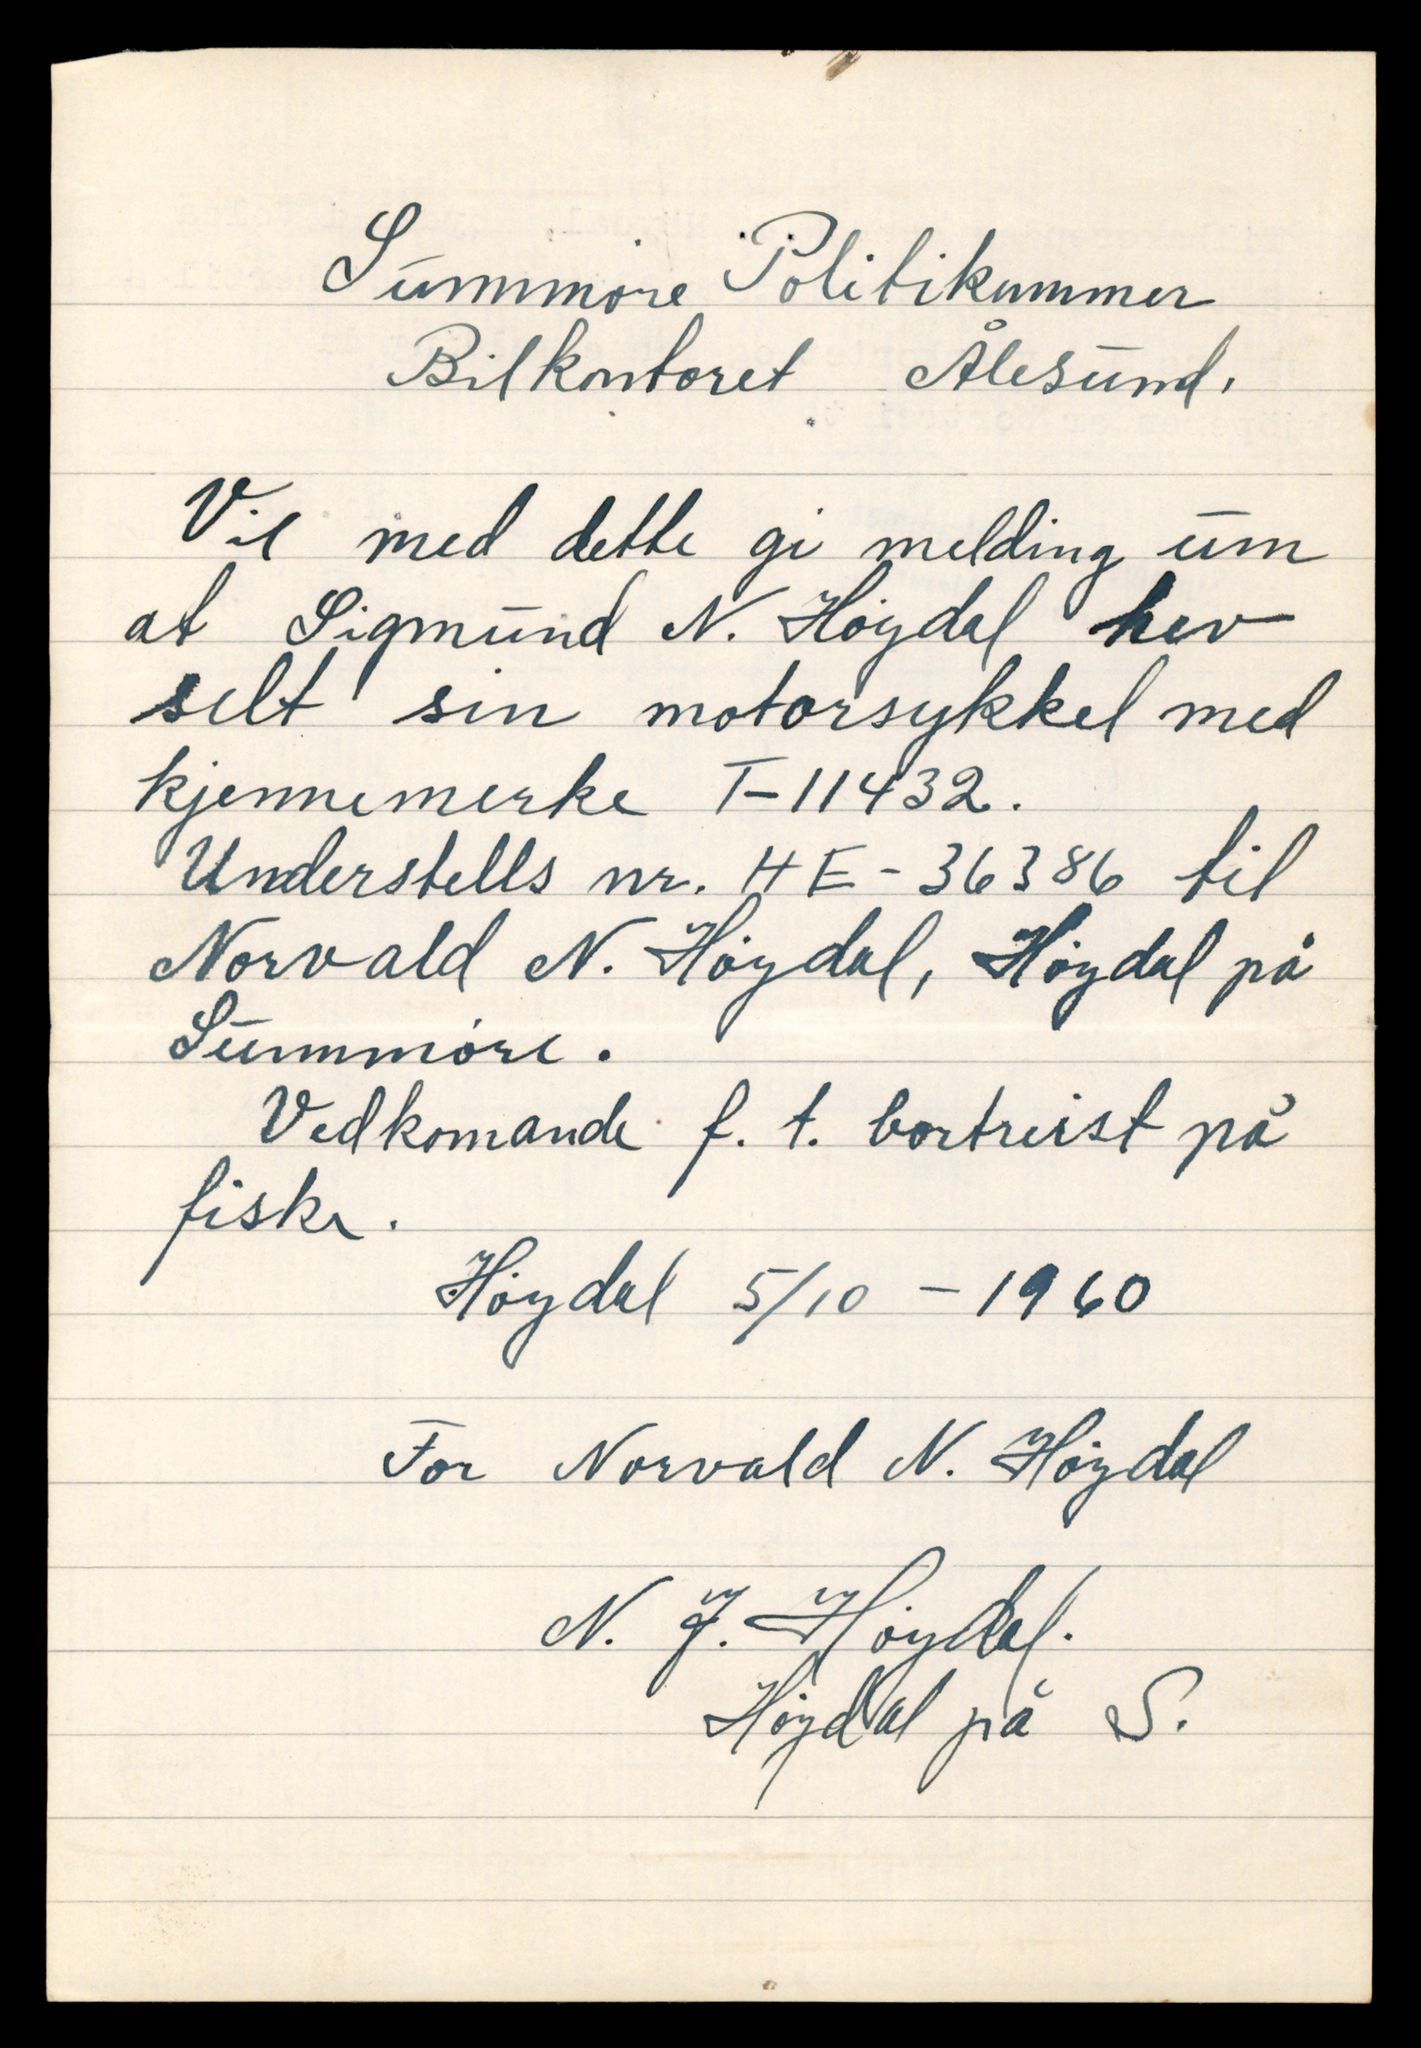 Sunnmöre Politikammer
Bilkontoret Ålesund.
Vil med dette gi melding um
at Sigmund N. Höydal hev
selt sin motorsykkel med
kjennemerke T-11432.
Understells nr. HE-36386 til
Norvald N. Höydal, Höydal på
Sunnmöre.
Vedkomande f. t. bortreist på
fiske.
Höydal 5/10 - 1960
For Norvald N. Höydal
N. J. Höydal.
Höydal på S.